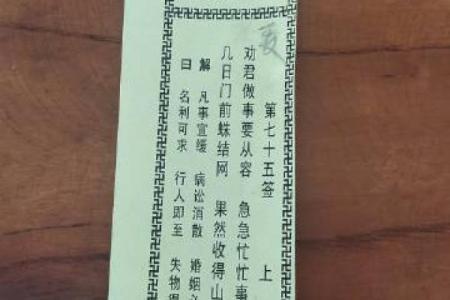 第七十五签 上
劝君做事要从容 急急忙忙事
几日门前蛛结网 果然收得山
解 凡事宜缓 病讼消散 婚姻
曰 名利可求 行人即至 失物得